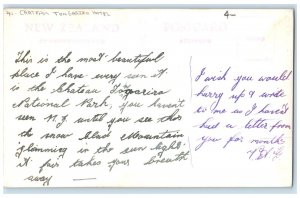 CHATEAU TONGARIRO HOTEL
4-
NEW ZEALAND
POSTCARD
This is the most beautiful
place I have every seen it
is the Chateau Tongariro
National Park, you haven't
seen N.Z until you see this
the snow clad Mountain
glamming in the sun light
it fair takes your breath
away
I wish you would
hurry up & wrote
to me as I haven't
had a letter from
you for months